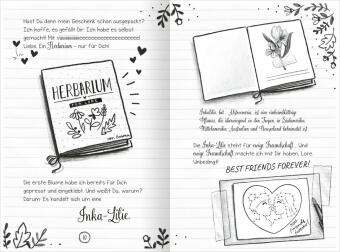 Hast Du denn mein Geschenk schon ausgepackt?
Ich hoffe, es gefällt Dir. Ich habe es selbst
gemacht! Mit
Liebe. Ein Herbarium – nur für Dich!
HERBARIUM
FÜR LORE
Die erste Blume habe ich bereits für Dich
gepresst und eingeklebt. Und weißt Du, warum?
Darum: Es handelt sich um eine
Inka-Lilie.
10
Inkalilie, bot. Alstroemeria, ist eine
Pflanze, die überwiegend in den Tropen, in Südamerika,
Mittelamerika, Australien und Neuseeland beheimatet ist.
Die Inka-Lilie steht für ewige Freundschaft. Und
ewige Freundschaft möchte ich mit Dir haben, Lore.
Unbedingt!
BEST FRIENDS FOREVER!